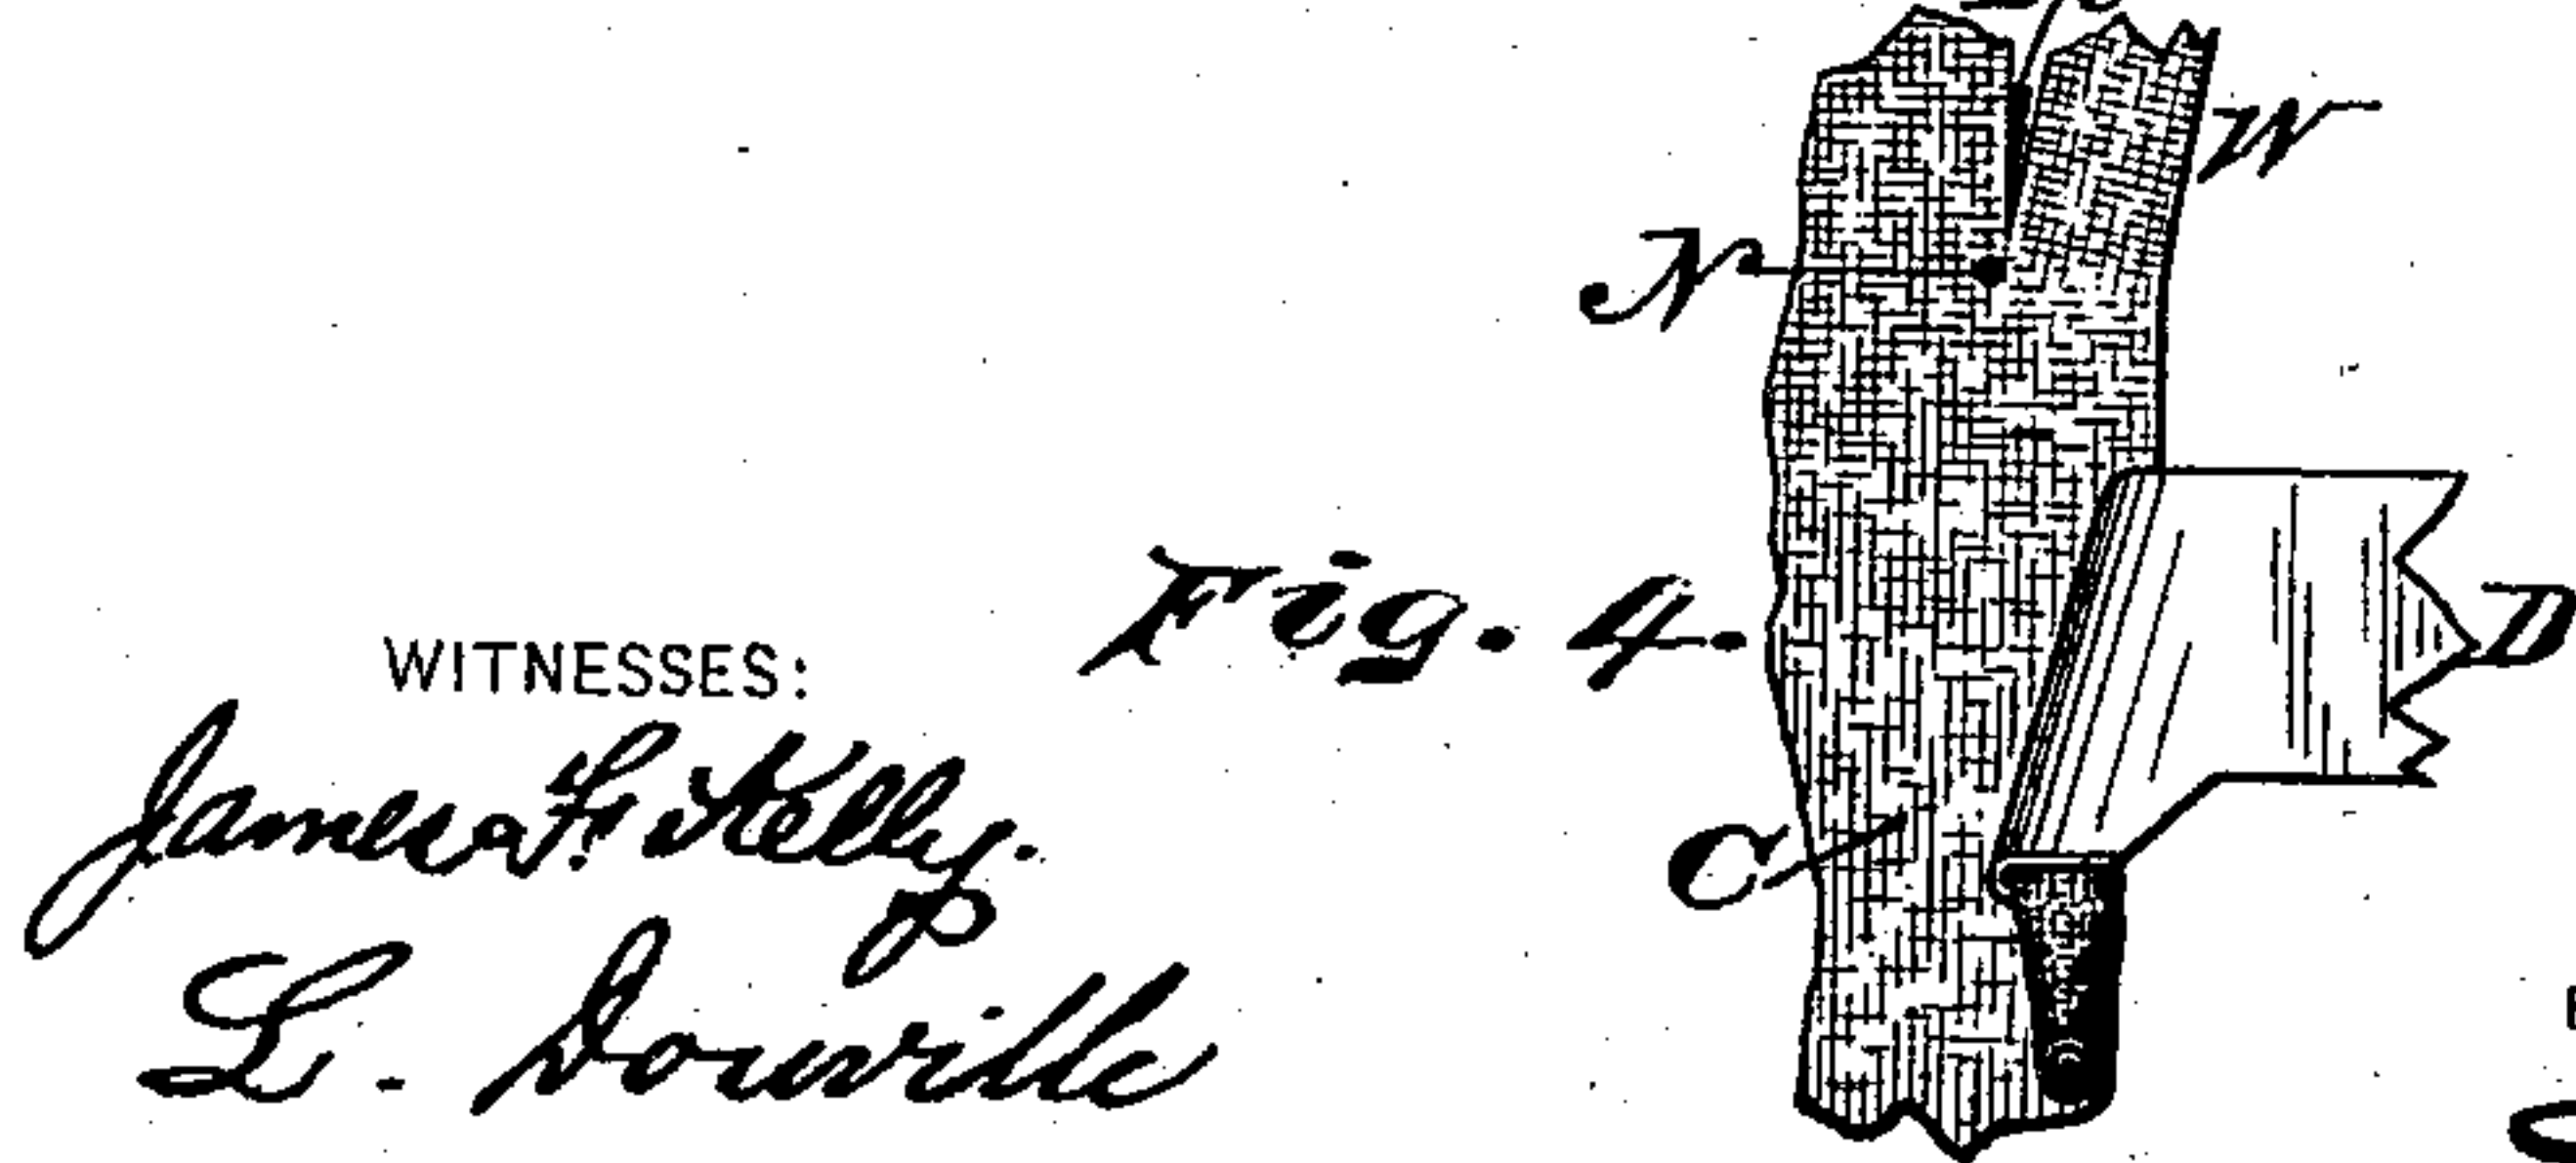 W
N
Fig. 4.
D
WITNESSES:
James F. Kelly.
C
L. Douville